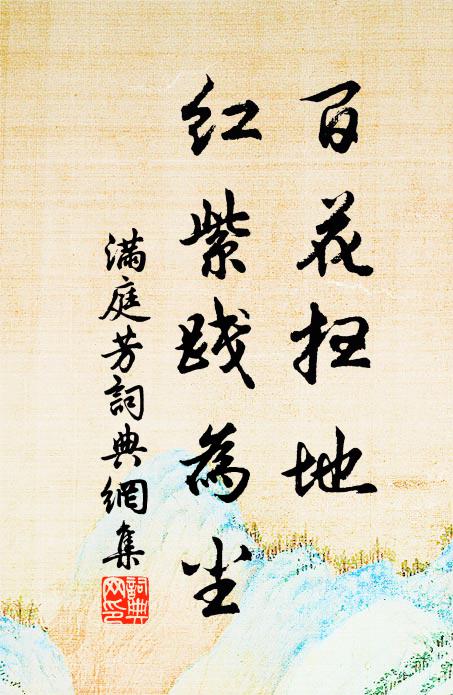 百花扫地
红紫践為尘
满庭芳詞典網集
詞典网印